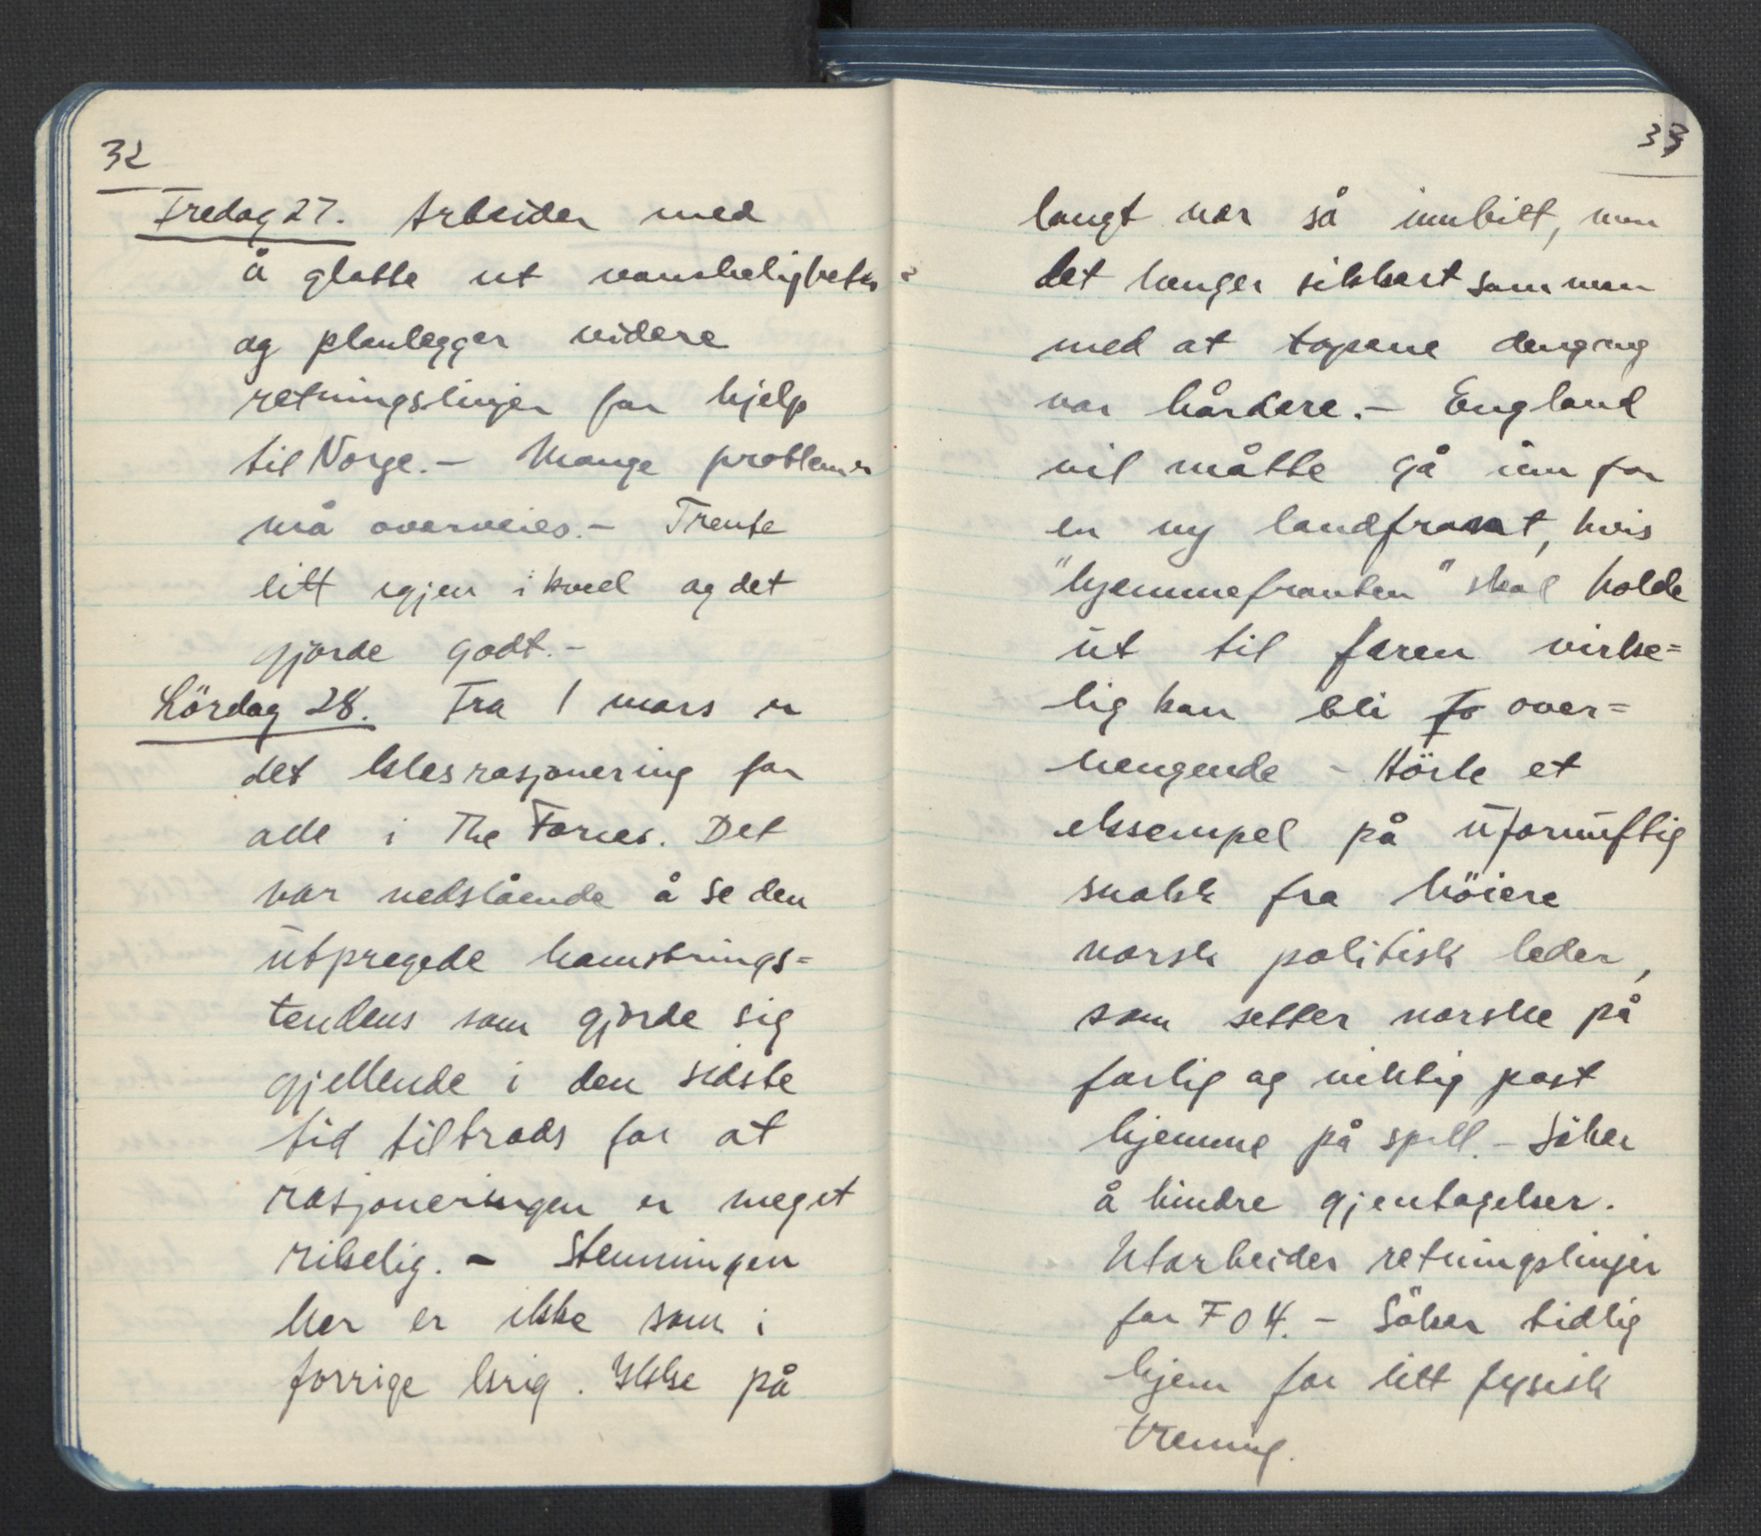 32
Fredag 27. Arbeider med
å glatte ut vanskeligheter
og planlegger videre
retningslinjer for hjelp
til Norge. – Mange problemer
må overveies. – Trente
litt igjen i kveld og det
gjorde godt. –
Lördag 28. Fra 1 mars er
det klesrasjonering for
alle i The Forces. Det
var nedslående å se den
utpregede hamstrings=
tendens som gjorde sig
gjellende i den sidste
tid tiltrods for at
rasjoneringen er meget
rikelig. – Stemningen
her er ikke som i
forrige krig. Ikke på
33
langt nær så innbitt, men
det henger sikkert sammen
med at tapene dengang
var hårdere. – England
vil måtte gå inn for
en ny landfront, hvis
"hjemmefronten" skal holde
ut til faren virke=
lig kan bli fo over=
hengende – Hörte et
eksempel på ufornuftig
snakk fra höiere
norsk politisk leder,
som setter norske på
farlig og viktig post
hjemme på spill. – Söker
å hindre gjentagelser.
Utarbeider retningslinjer
for FO 4. – Söker tidlig
hjem for litt fysisk
trening.